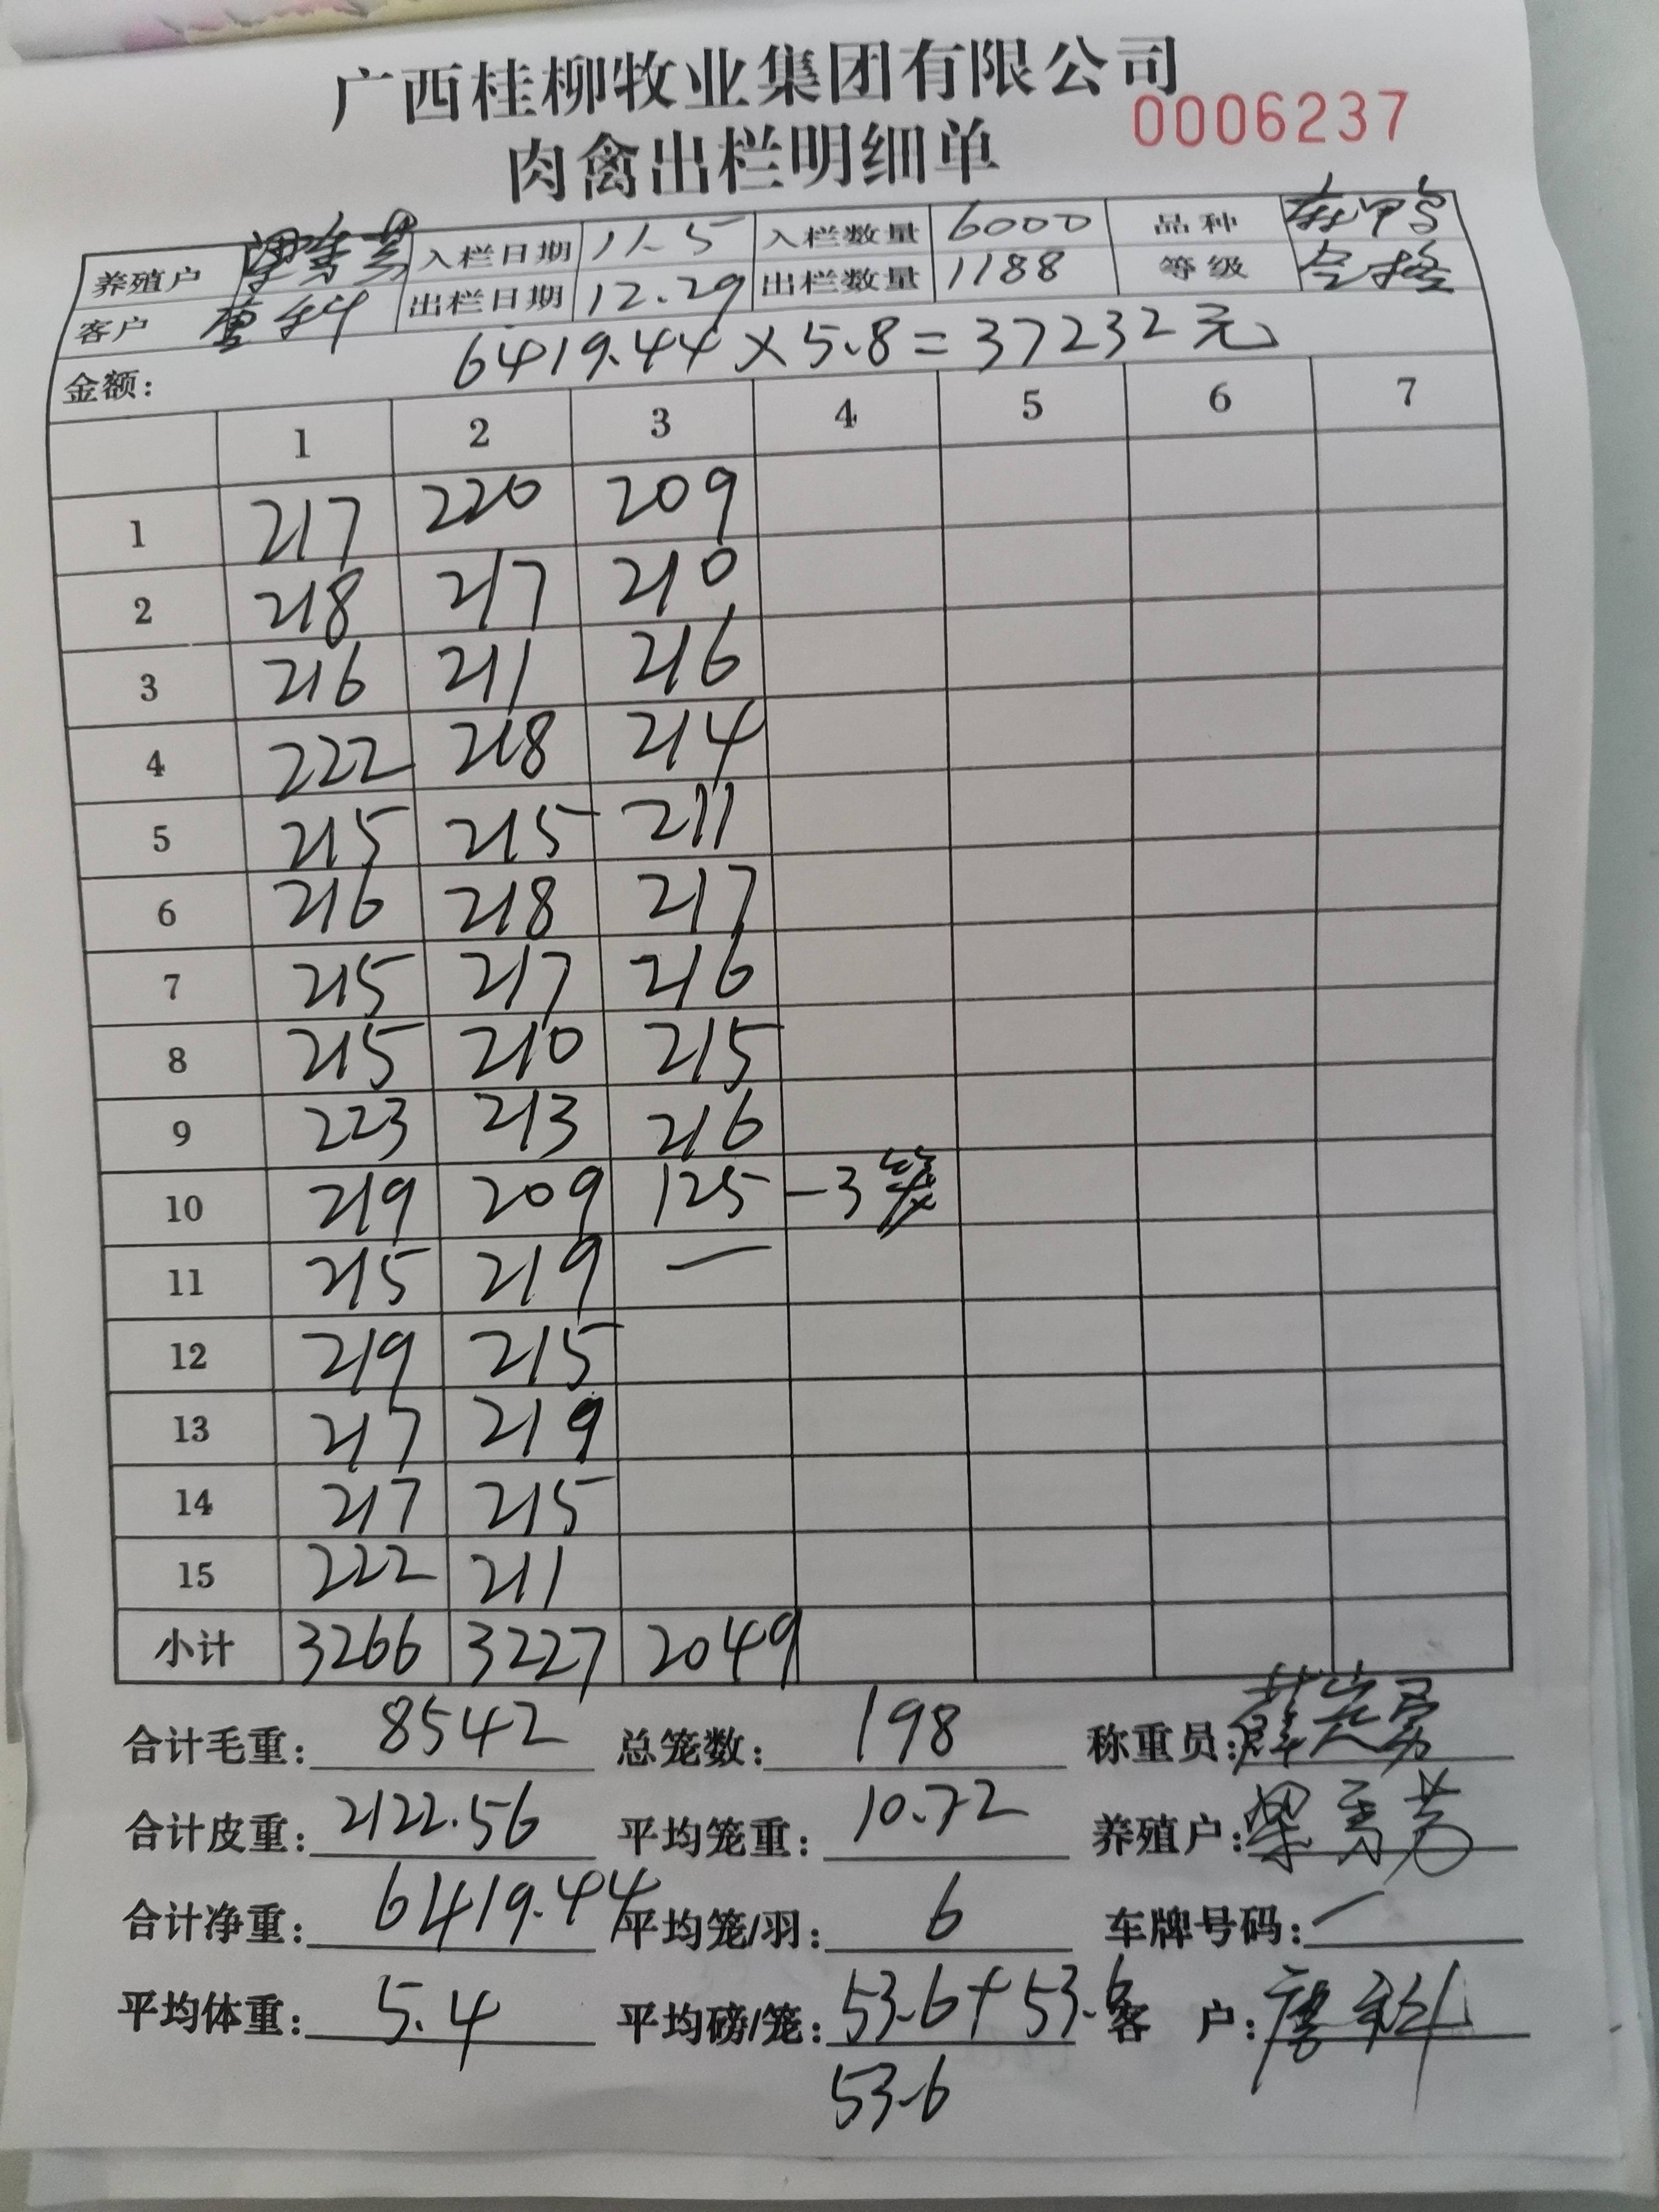 广西桂柳牧业集团有限公司
肉禽出栏明细单 0006237
养殖户 梁秀芸 入栏日期 11.5 入栏数量 6000 品种
客户 出栏日期 12.29 出栏数量 1188 等级 合格
金额： 6419.44×5.8=37232元
1 2 3 4 5 6 7
1 217 220 209
2 218 217 210
3 216 211 216
4 222 218 214
5 215 215 211
6 216 218 217
7 215 217 216
8 215 210 215
9 223 213 216
10 219 209 125 -3
11 215 219 一
12 219 215
13 217 219
14 217 215
15 222 211
小计 3266 3227 2049
合计毛重： 8542 总笼数： 198 称重员：
合计皮重： 2122.56 平均笼重： 10.72 养殖户： 梁秀芸
合计净重： 6419.44 平均笼/羽： 6 车牌号码： 一
平均体重： 5.4 平均磅/笼： 53.6+53.6 客户：
53.6